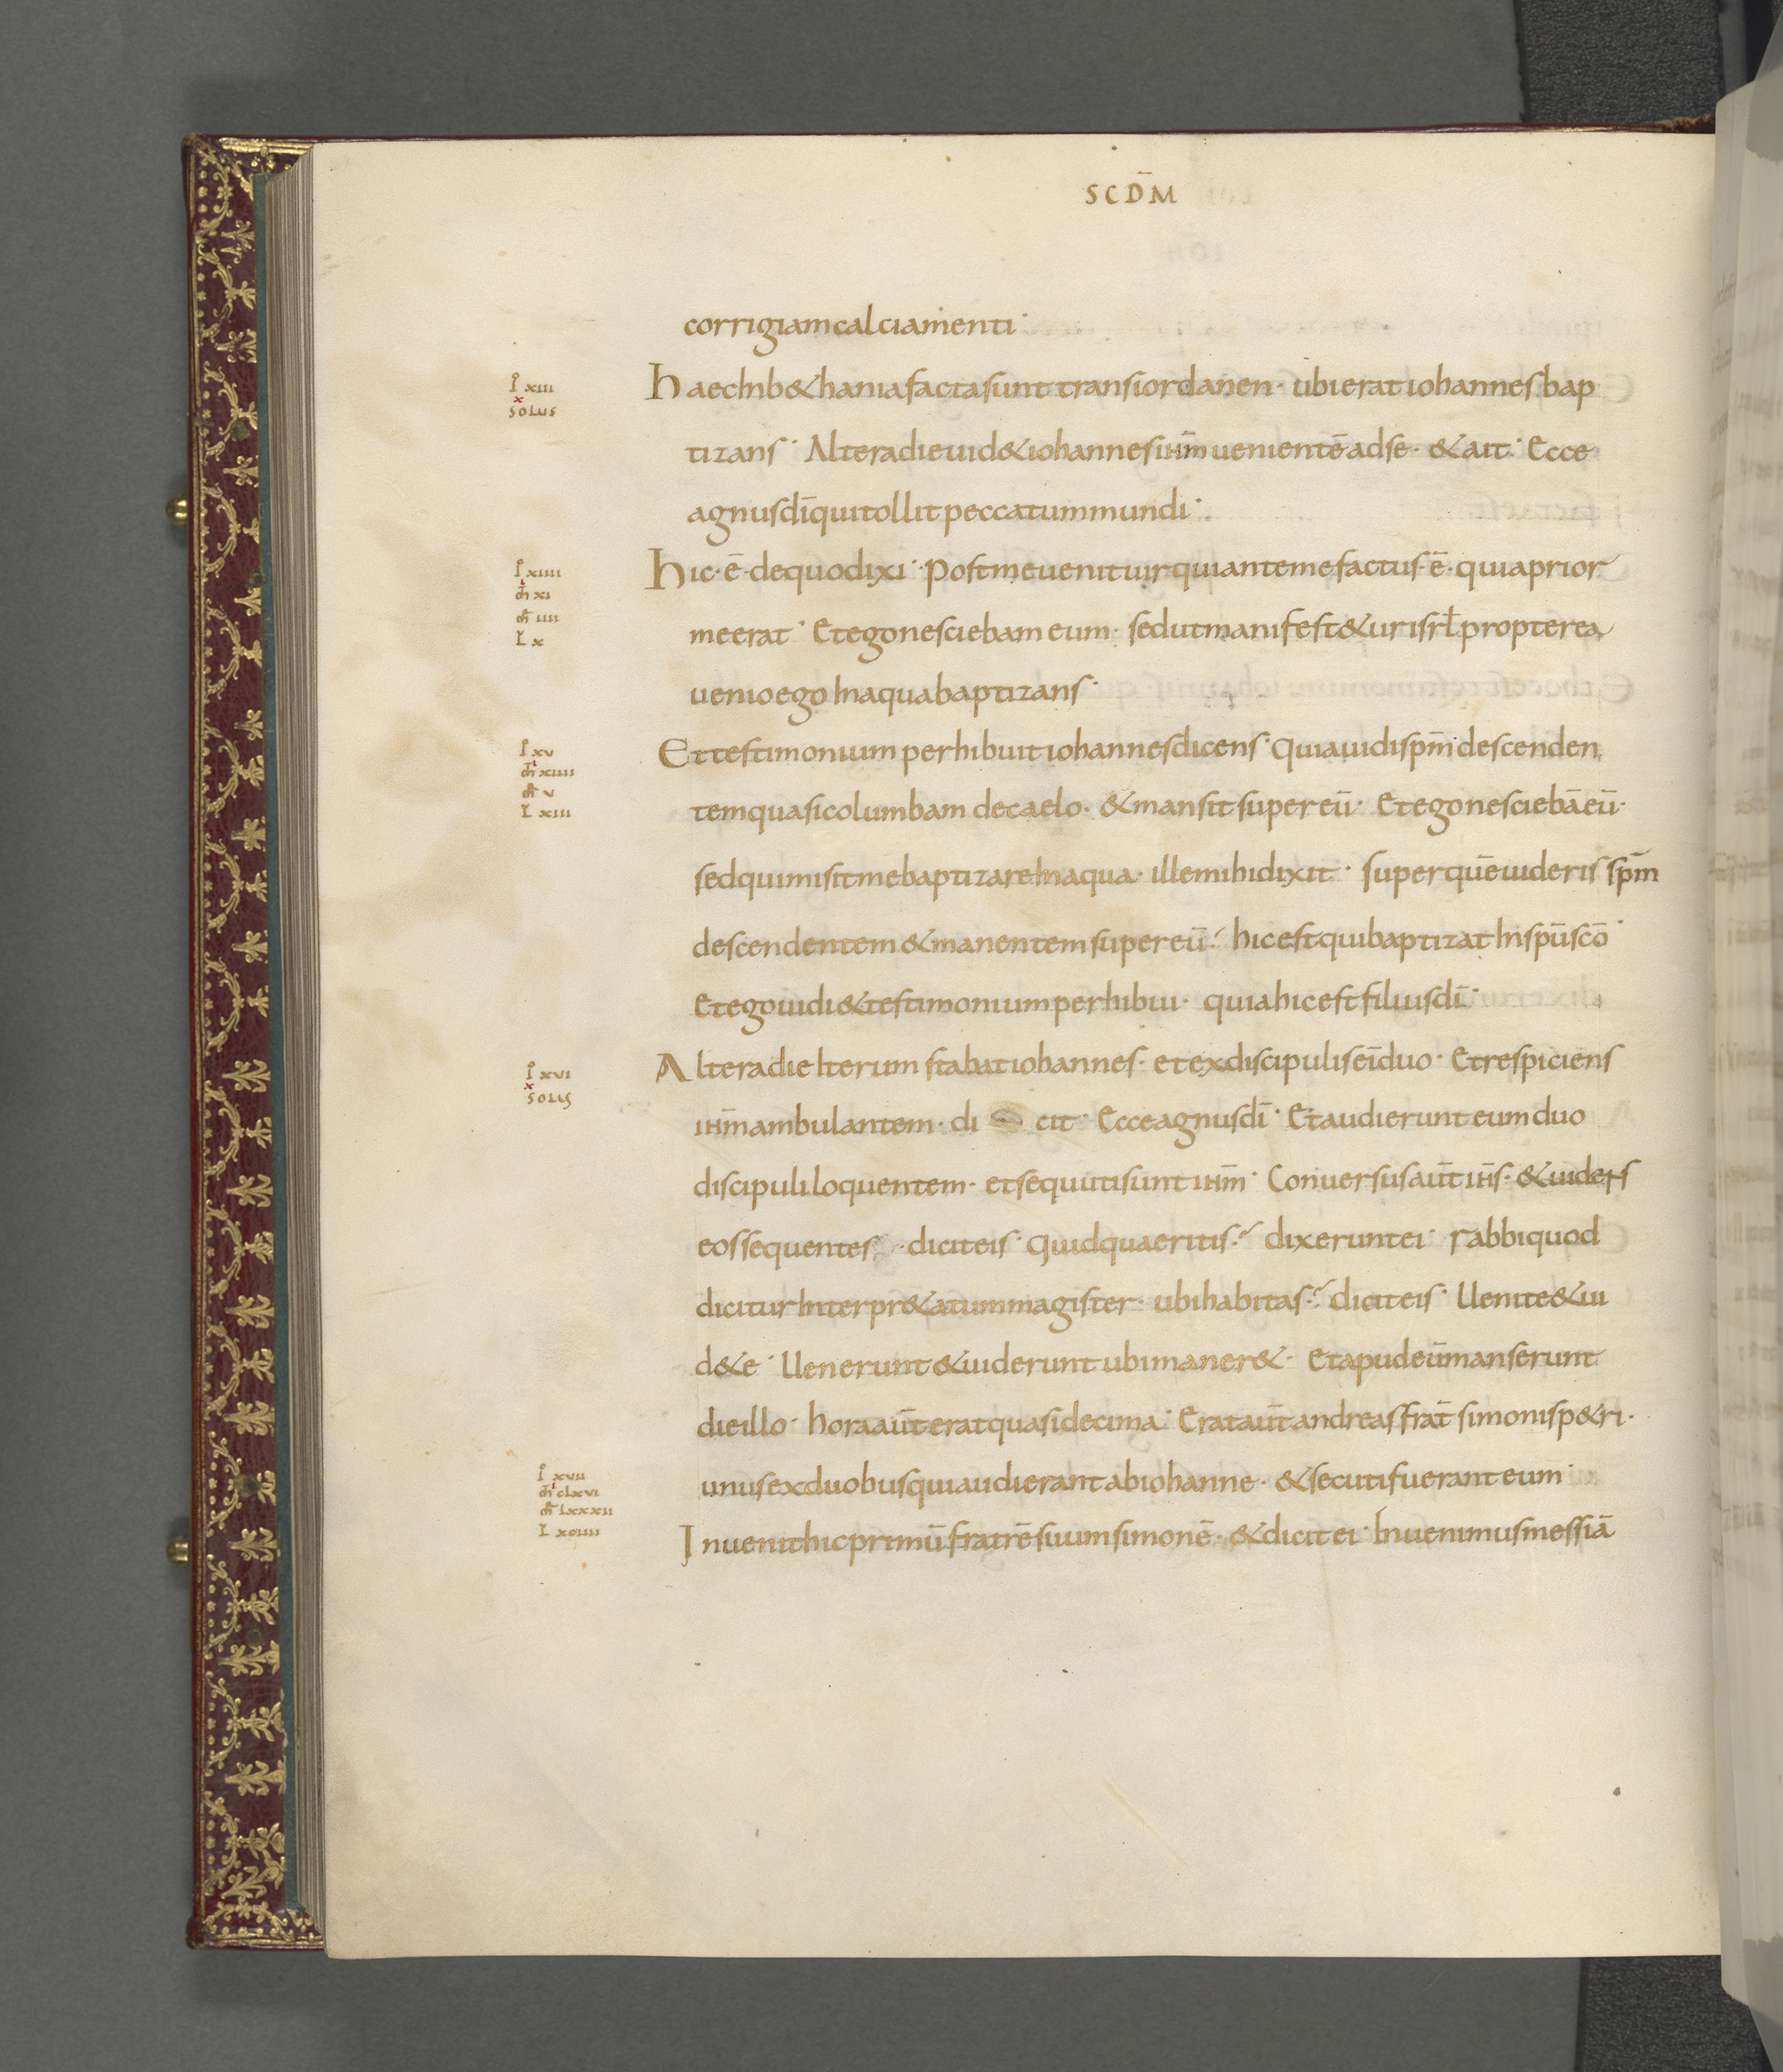 SCD̄M
corrigiam calciamenti·
I̊ xiii
Haec in b&hania facta sunt trans iordanen· ubi erat iohannes bap
SOLUS
tizans· Altera die uid& iohannes ihm̄ uenientē ad se· & ait· Ecce
agnus dī qui tollit peccatum mundi·
I̊ xiiii
Hic· ē· de quo dixi· Post me uenit uir qui ante me factus· ē· quia prior
m̄ xi
m̄ iiii
L x
me erat· Et ego nesciebam eum· sed ut manifest&ur isrł propterea
uenio ego in aqua baptizans·
I̊ xv
Et testimonium perhibuit iohannes dicens· Quia uidi spm̄ descenden
m̄ xiiii
m̄ v
L xiii
tem quasi columbam de caelo· & mansit super eū· Et ego nesciebā eū·
sed qui misit me baptizare in aqua· ille mihi dixit· super quē uideris spm̄
descendentem & manentem super eū· hic est qui baptizat in spū scō·
Et ego uidi & testimonium perhibui· quia hic est filius dī·
I̊ xvi
Altera die iterum stabat iohannes· et ex discipulis eī duo· Et respiciens
SOLUS
ihm̄ ambulantem· di cit· Ecce agnus dī· Et audierunt eum duo
discipuli loquentem· et sequuti sunt ihm̄· Conuersus aūt ihs̄· & uidens
eos sequentes· dicit eis· Quid quaeritis· dixerunt ei· rabbi quod
dicitur interpr&atum magister· ubi habitas· dicit eis· Uenite & ui
d&e· Uenerunt & uiderunt ubi maner&· Et apud eū manserunt
die illo· hora aūt erat quasi decima· Erat aūt andreas frat̄ simonis p&ri·
I̊ xvii
unus ex duobus qui audierant ab iohanne· & secuti fuerant eum·
m̄ clxvi
m̄ lxxxii
L xciiii
Inuenit hic primū fratrē suum simonē· & dicit ei· Inuenimus messiā